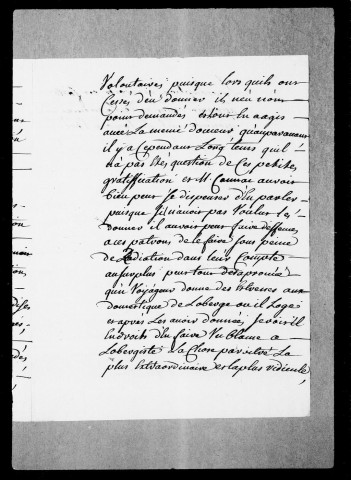 Volontaires puisque lors quils ont
Cessés d'en donner ils neu nom
point demandés et s'ont lu aagis
avec La meme douceur qu'auparavant
il y a Cependant Long tems quil
n'a pas Etés question de Ces petites
gratiffications et M. auroit
bien peut se dispenser d'en parler
puisque s'il n'avoit pas Voulut les
donner il auroit peut faire deffences
a ces patrons de le faire sous peine
de Radiation dans leurs Compte
au surplus peut ton desaprouvé
qu'un Voyageur donne des Etrennes aux
domestique de Loberge ou il Loge
et apres Les avoir donnés, seroit il
in droits d'en faire Un blame a
Lobergiste La Chose paroitré La
plus Extraordinaire et la plus ridicule,